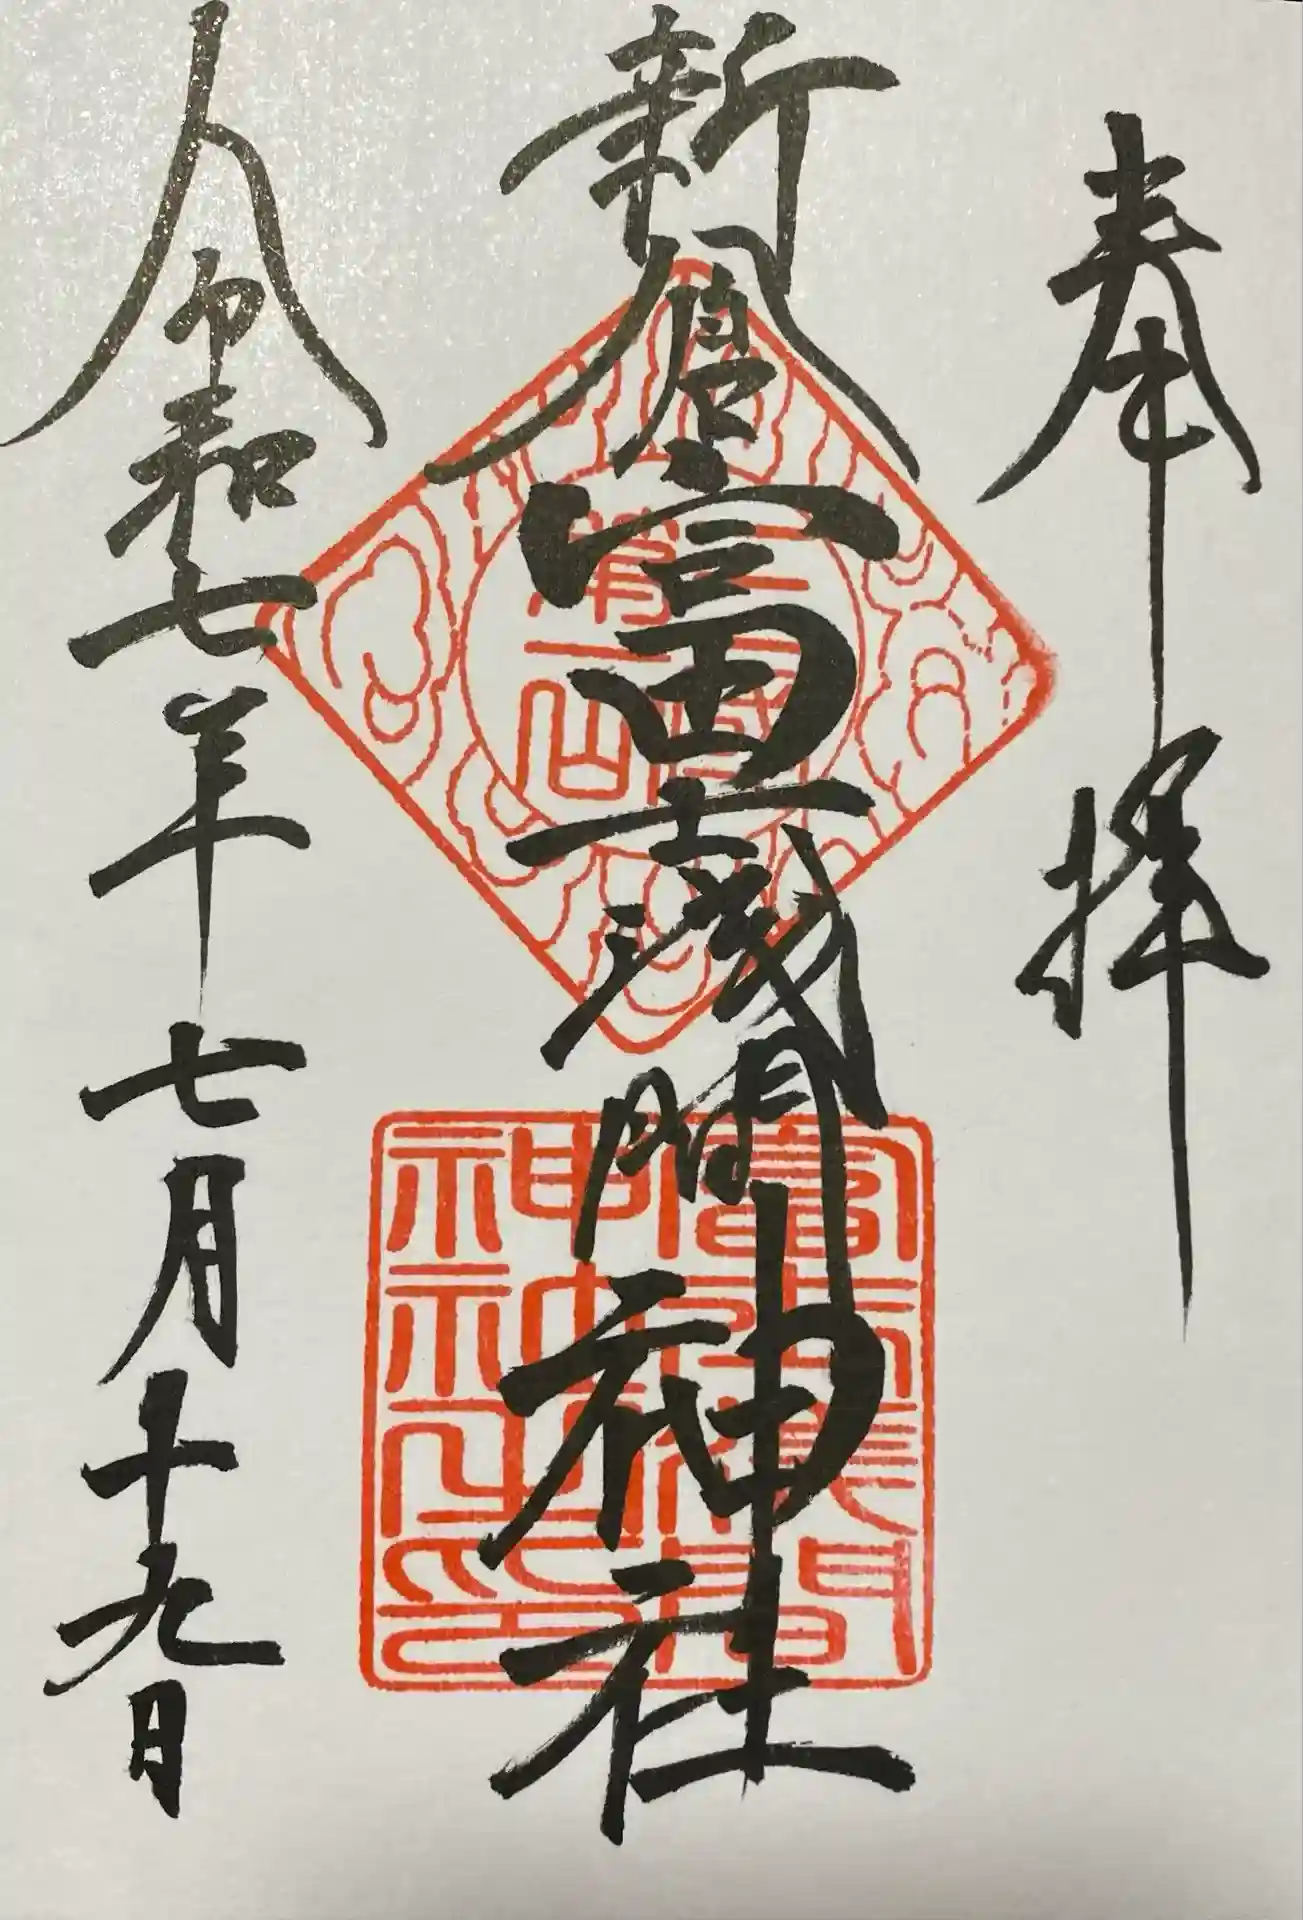 奉拝
新倉富士浅間神社
三國第一山
冨士浅間神社之印
令和七年七月十九日